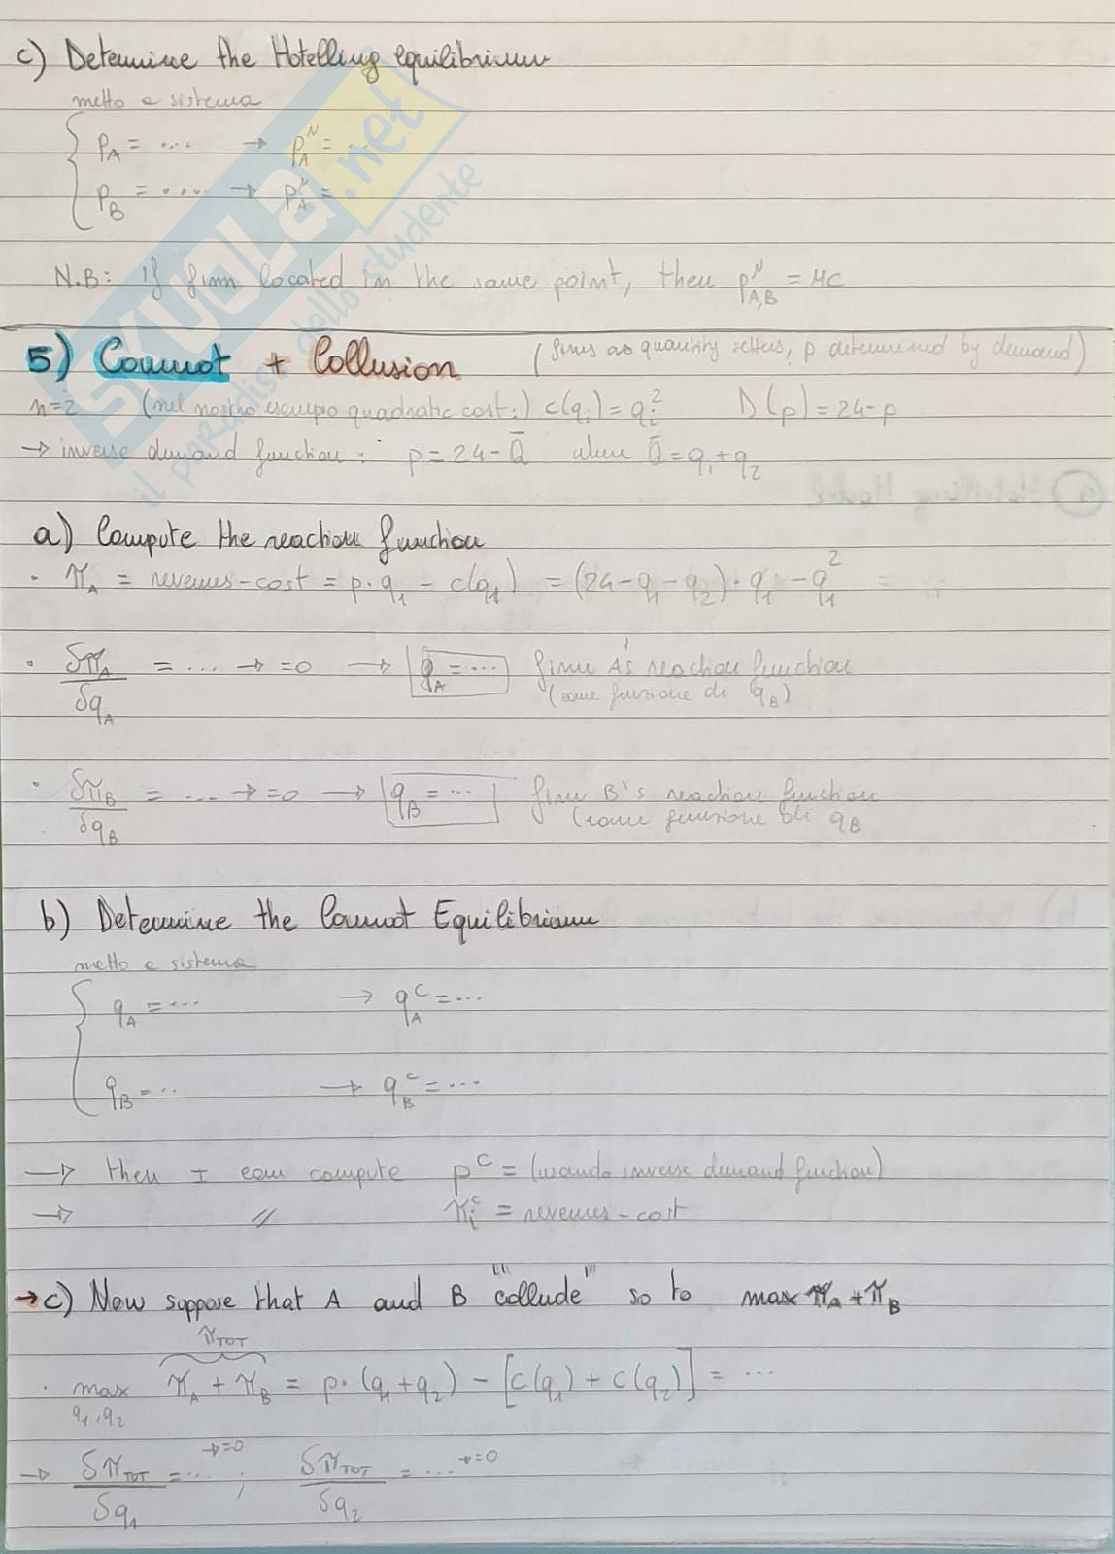 c) Determine the Hotelling equilibrium
metto a sistema
p_A = ... → p_A^N = ...
p_B = .... → p_A^N =
N.B: if firm located in the same point, then p_{A,B}^N = MC
5) Cournot + Collusion (firms as quantity setters, p determined by demand)
n=2 (nel nostro esempo quadratic cost:) c(q_i) = q_i^2 D(p) = 24-p
→ inverse demand function: p = 24 - Q̄ where Q̄ = q_1 + q_2
a) Compute the reaction function
· π_A = revenues-cost = p·q_1 - c(q_1) = (24-q_1-q_2)·q_1 - q_1^2 =
· δπ_A/δq_A = ... → =0 → q_A = ... firm A's reaction function
(come funzione di q_B)
· δπ_B/δq_B = ... → =0 → q_B = ... firm B's reaction function
(come funzione di q_B
b) Determine the Cournot Equilibrium
metto a sistema
q_A = ... → q_A^C = ...
q_B = ... → q_B^C = ...
→ then I can compute p^C = (usando inverse demand function)
→ // π_i^C = revenues-cost
→ c) Now suppose that A and B "collude" so to max π_A + π_B
π_TOT
· max π_A + π_B = p·(q_1+q_2) - [c(q_1) + c(q_2)] = ...
q_1,q_2
→ δπ_TOT/δq_1 = ... →=0 ; δπ_TOT/δq_2 = ... →=0
SKUOLA.net
il paradiso dello studente